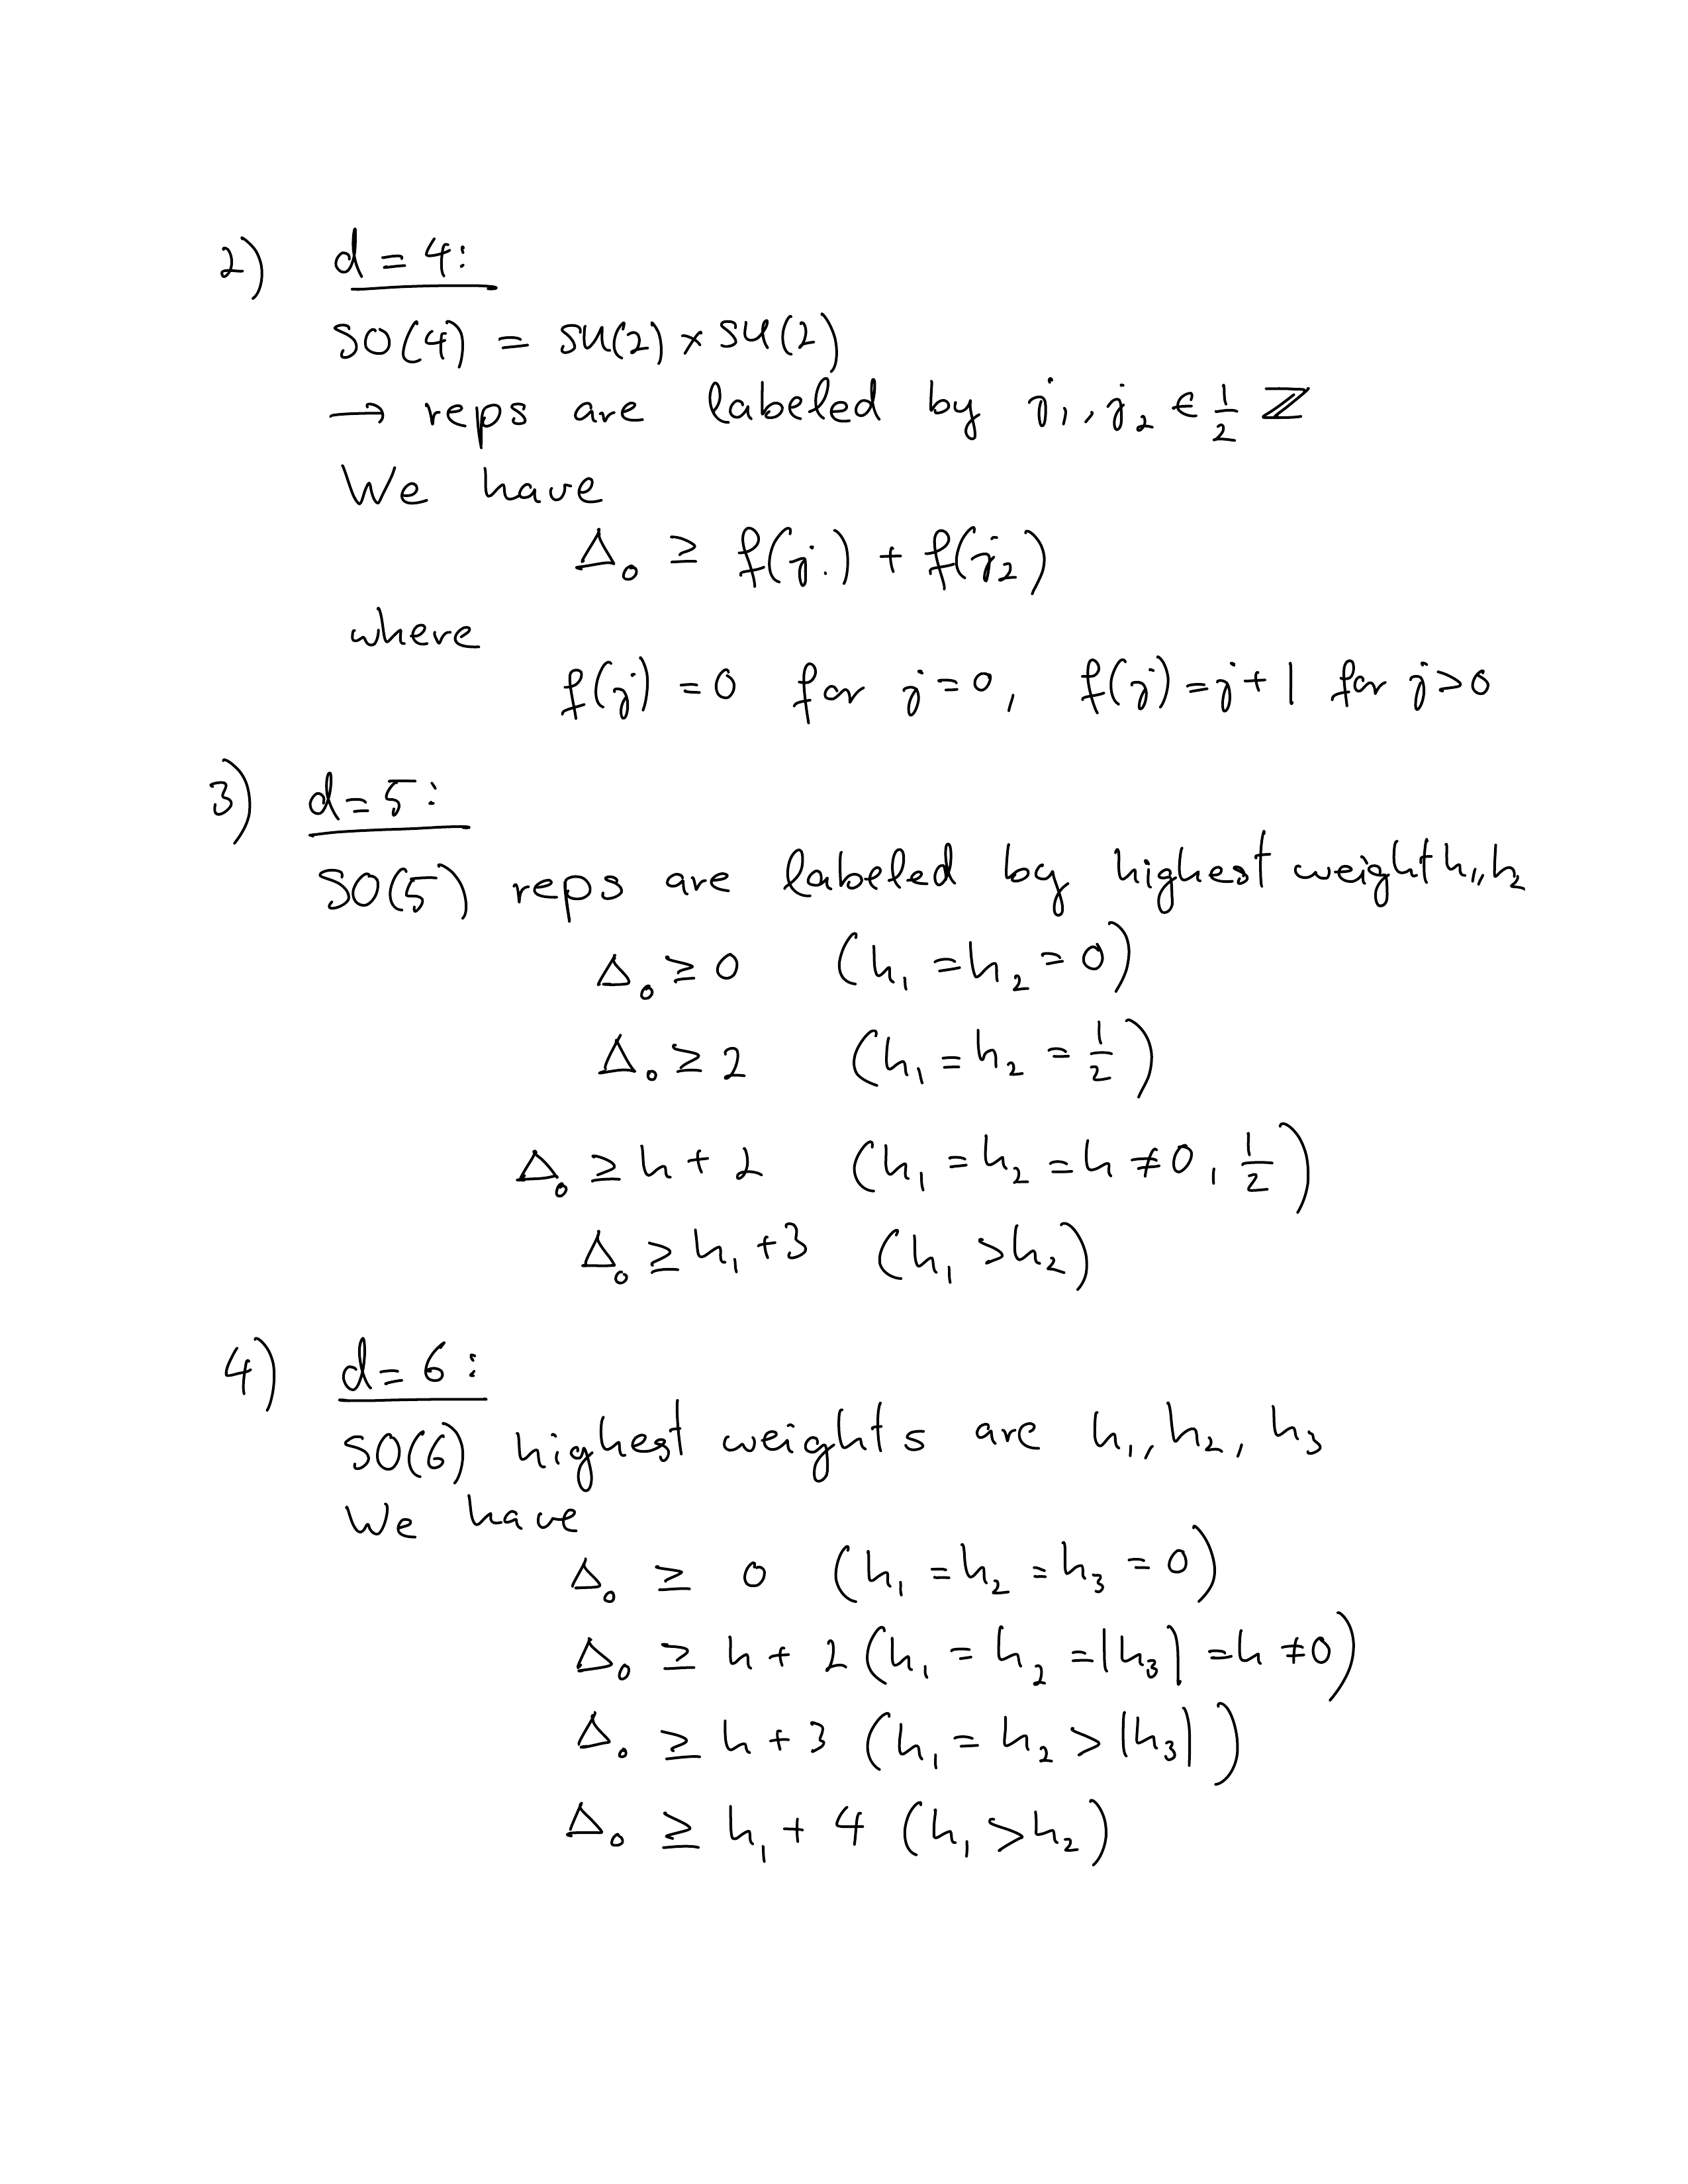 2) d = 4:
SO(4) = SU(2) × SU(2)
→ reps are labeled by j₁, j₂ ∈ ½ ℤ
We have
Δ₀ ≥ f(j₁) + f(j₂)
where
f(j) = 0 for j = 0, f(j) = j + 1 for j > 0
3) d = 5:
SO(5) reps are labeled by highest weight h₁, h₂
Δ₀ ≥ 0 (h₁ = h₂ = 0)
Δ₀ ≥ 2 (h₁ = h₂ = ½)
Δ₀ ≥ h + 2 (h₁ = h₂ = h ≠ 0, ½)
Δ₀ ≥ h₁ + 3 (h₁ > h₂)
4) d = 6:
SO(6) highest weights are h₁, h₂, h₃
We have
Δ₀ ≥ 0 (h₁ = h₂ = h₃ = 0)
Δ₀ ≥ h + 2 (h₁ = h₂ = |h₃| = h ≠ 0)
Δ₀ ≥ h + 3 (h₁ = h₂ > |h₃|)
Δ₀ ≥ h₁ + 4 (h₁ > h₂)